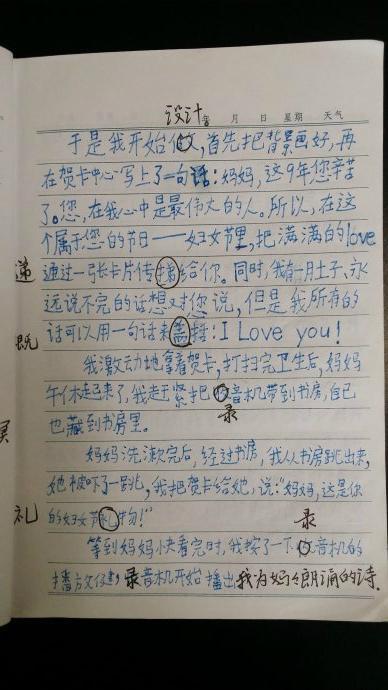 设计
年 月 日 星期 天气
于是我开始 ,首先把背景画好,再
在贺卡中心写上了一句话:妈妈,这9年您辛苦
了。您,在我心中是最伟大的人。所以,在这
个属于您的节日——妇女节里,把满满的love
递
通过一张卡片传 给你。同时,我有一肚子、永
远说不完的话想对您说,但是我所有的
概
话可以用一句话来 括:I Love you!
我激动地拿着贺卡,打扫完卫生后,妈妈
午休起来了,我赶紧把 音机带到书房,自己
录
也藏到书房里。
妈妈洗漱完后,经过书房,我从书房跳出来,
她被吓了一跳,我把贺卡给她,说:“妈妈,这是你
礼
的妇女节礼物!”
录
等到妈妈快看完时,我按了一下 音机的
播放键,录音机开始播出我为妈妈朗诵的诗.